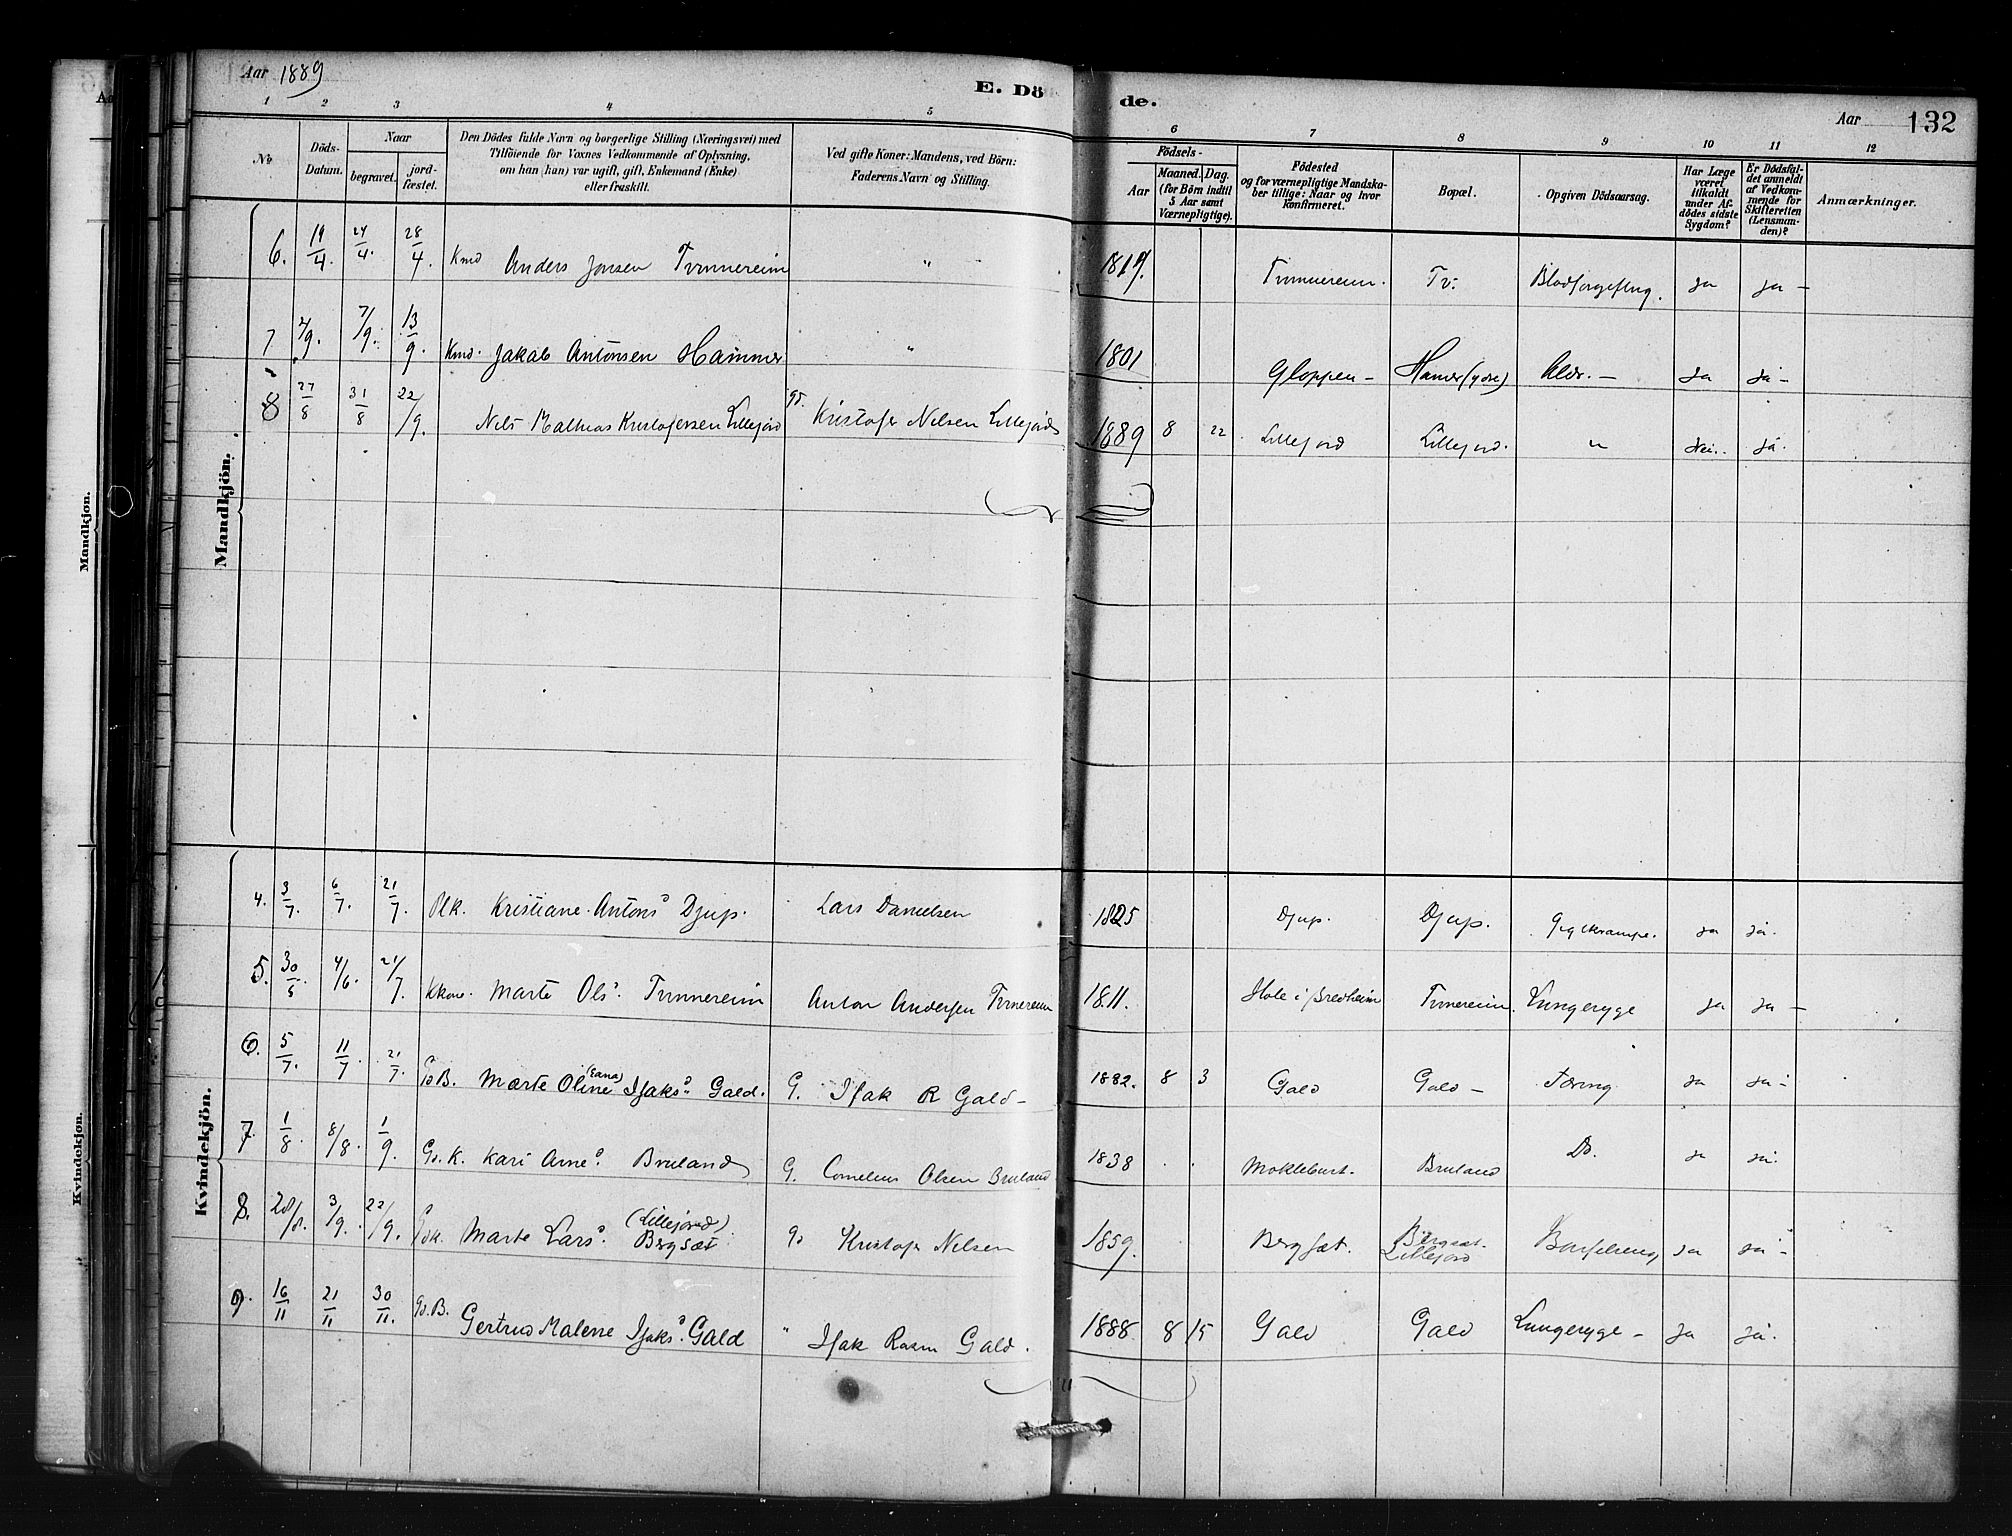 Aar 1889
E. Dö
de.
Aar
132
1 2 3 4 5 6 7 8 9 10 11 12
No
Döds-Datum.
Naar
begravet.
jord-fæstet.
Den Dödes fulde Navn og borgerlige Stilling (Næringsvei) med
Tilföiende for Voxnes Vedkommende af Oplysning,
om han (hun) var ugift, gift, Enkemand (Enke)
eller fraskilt.
Ved gifte Koner: Mandens, ved Börn:
Faderens Navn og Stilling.
Födsels-
Aar
Maaned. Dag.
(for Börn indtil
5 Aar samt
Værnepligtige).
Födested
og for værnepligtige Mandska-
ber tillige: Naar og hvor
konfirmeret.
Bopæl.
Opgiven Dödsaarsag.
Har Læge
været
tilkaldt
under Af-
dödes sidste
Sygdom?
Er Dödsfal-
det anmeldt
af Vedkom-
mende for
Skifteretten
(Lensman-
den)?
Anmærkninger.
Mandkjön.
6. 19/4. 24/4. 28/4. Kmd Anders Jonsen Tvinnereim " 1819. Tvinnereim. Tv. Blodforgiftng. Ja Ja -
7 4/9. 7/9. 13/9. Kmd. Jakob Antonsen Hammer " 1801 Gloppen - Hamer (ydre) Aldr. - Ja Ja -
8 27/8 31/8 22/9. Nils Mathias Kristofersen Lillejord gd. Kristofer Nilsen Lillejord 1889 8 22. Lillejord Lillejord. " Nei. Ja.
Kvindekjön.
4. 3/7. 6/7. 21/7. Kristiane Antons Djup. Lars Danielsen 1825 Djup. Djup. Ja Ja.
5. 30/5. 4/6. 21/7. Kkone. Marte Ols. Tvinnereim Anton Andersen Tvinereim 1811. Hole i Bredheim Tvinereim. Lungesyge Ja Ja -
6. 5/7. 11/7. 21/7. Gd B. Marte Oline (Jana) Isaks. Gald. G. Isak R Gald - 1882. 8 3 Gald Gald - Tæring Ja Ja -
7. 1/8. 8/8. 1/9. Gd. K. Kari Arne. Bruland G. Cornelius Olsen Bruland 1838 Myklebust. Bruland Do. Ja Ja.
8. 28/8. 3/9. 22/9. Gdk. Marte Lars. (Lillejord) Bergsæt Gd Kristofer Nilsen 1859. Bergsæt. Bergsæt. Lillejord Barselseng Ja Ja -
9. 16/11 21/11 30/11. Gd. B. Gertrud Malene Isaks. Gald " Isak Rasm Gald. 1888. 8 15 Gald Gald Lungesyge - Ja Ja.
Mandkjön.
Kvindekjön.